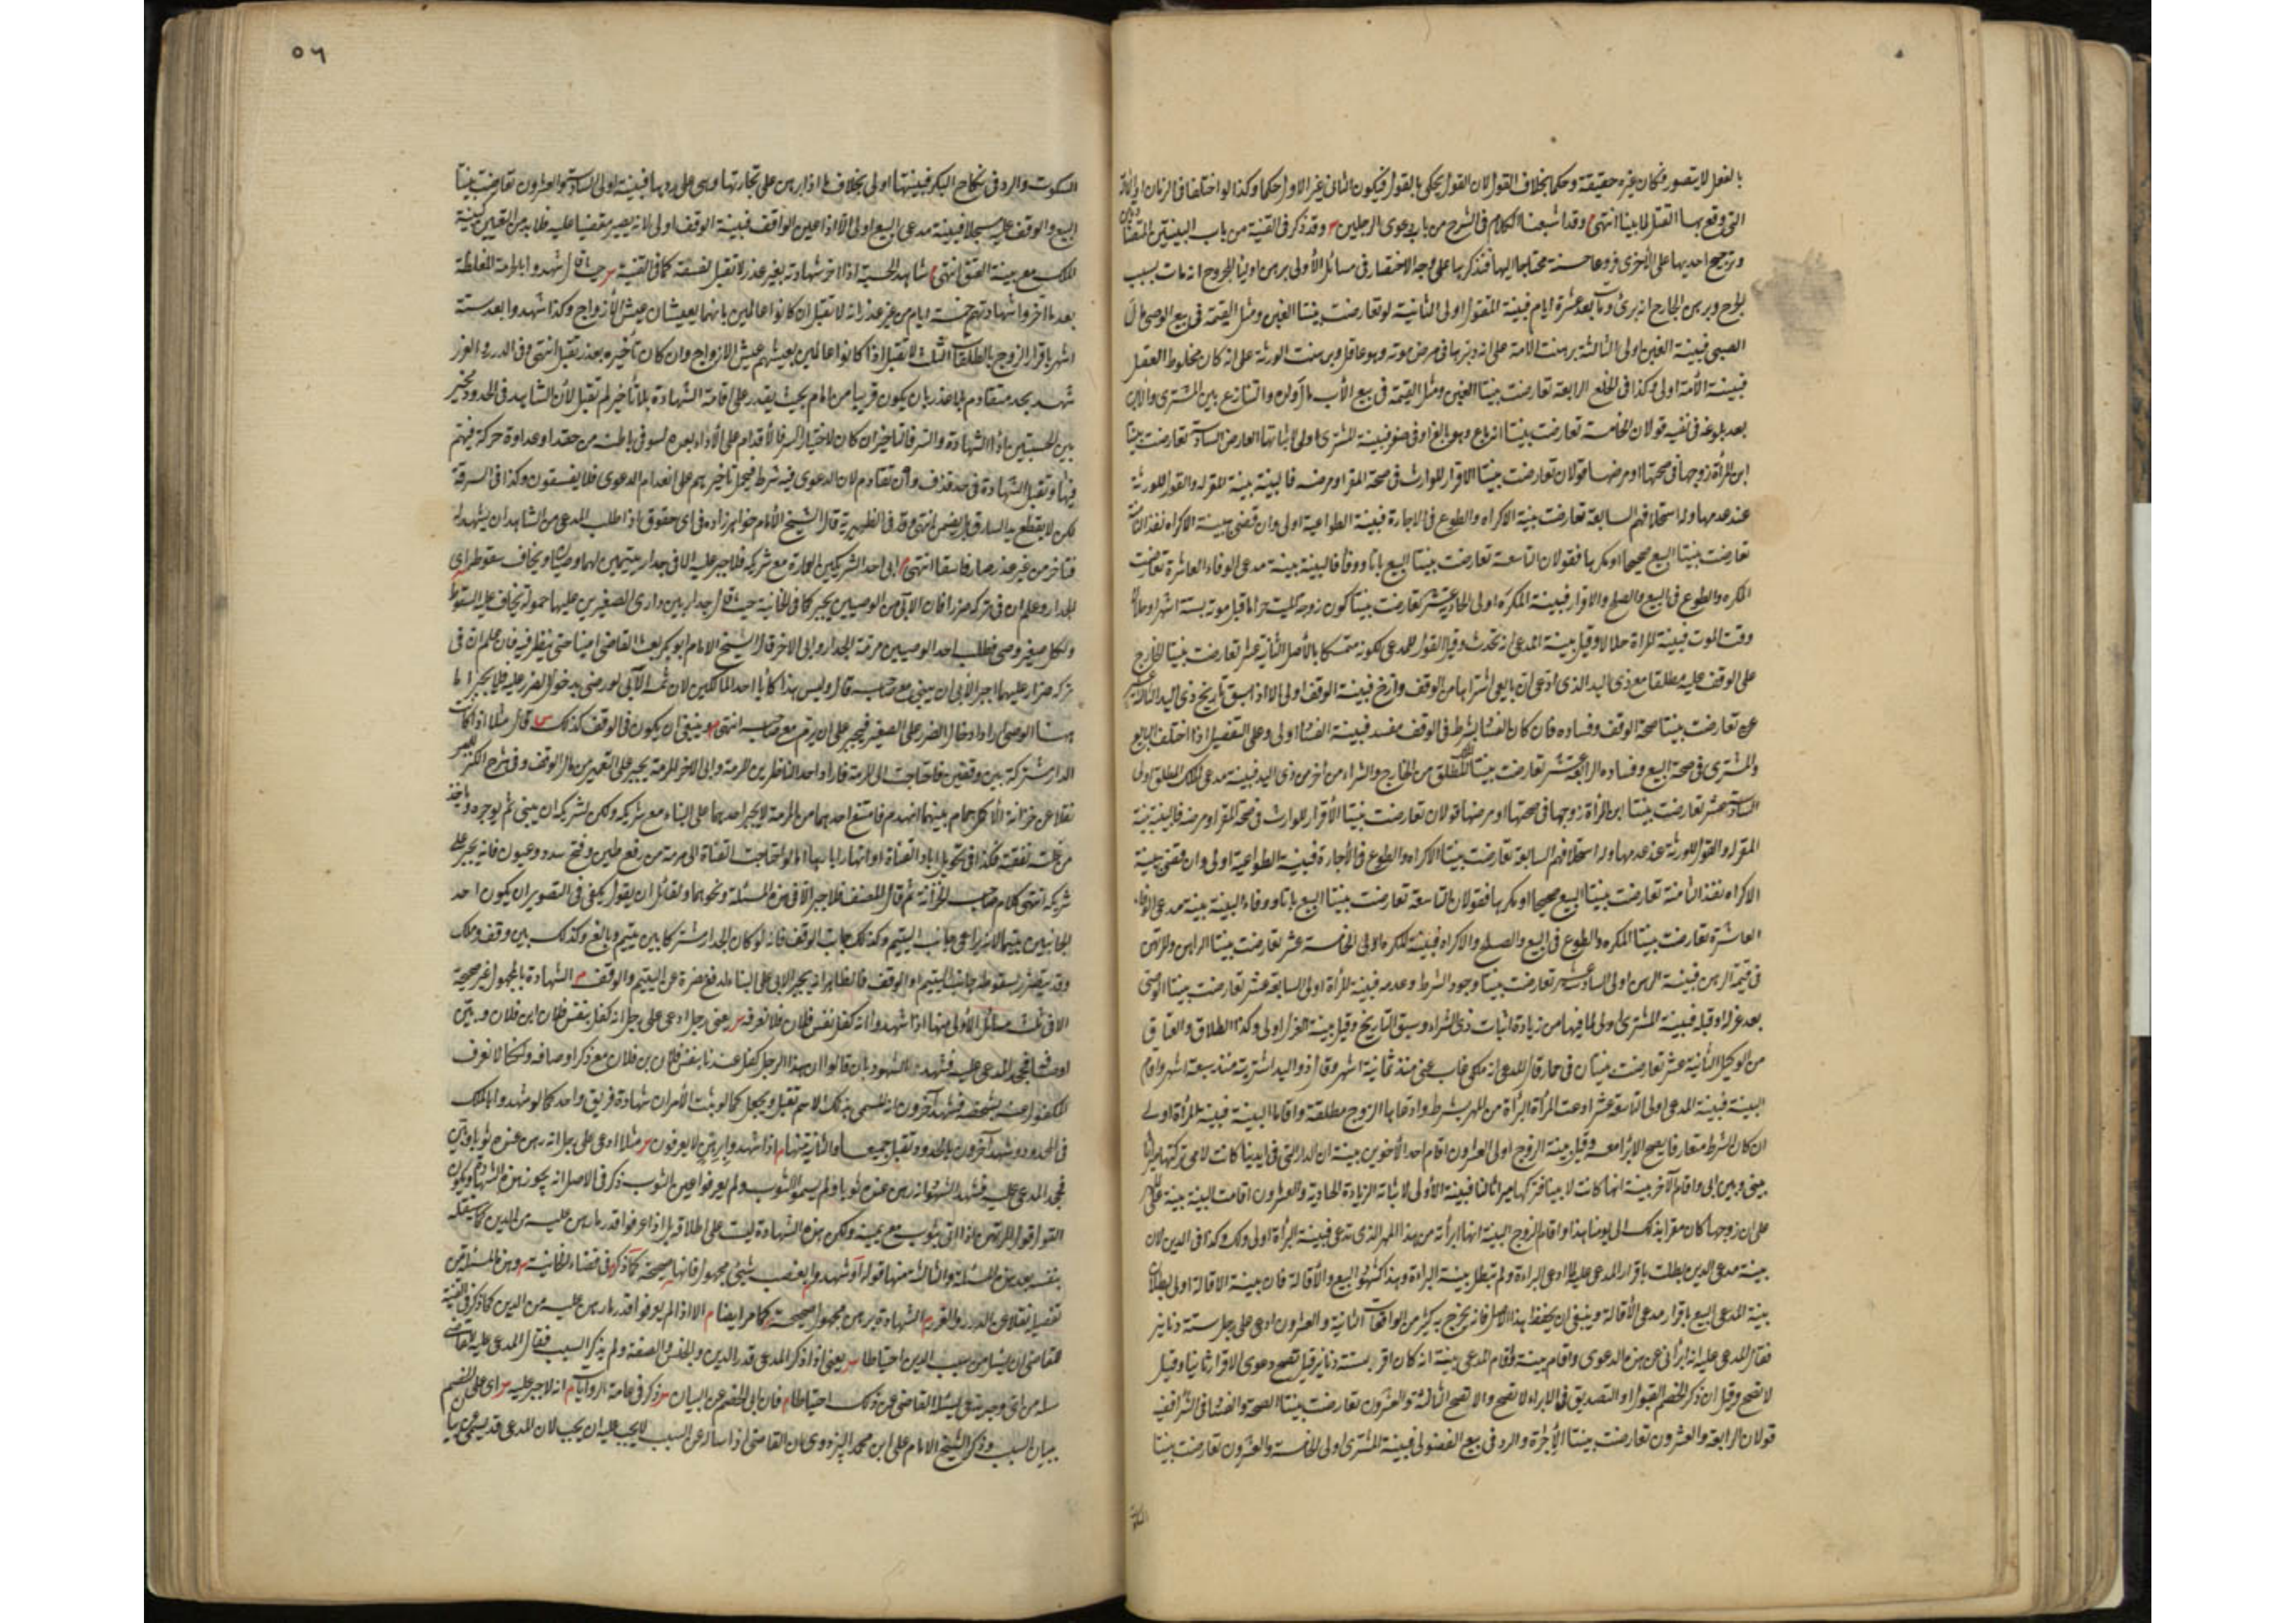 بالفعل لا يتصور فكان غيره حقيقة وحكما بخلاف القول لان القول يحكى بالقول فيكون الثانى غير الاول حكما وكذا لو اختلفا فى الزمان او المكان
التى وقع بها القتل لما بينا انتهى وقد اشبعنا الكلام فى الشرح من باب دعوى الرجلين وقد ذكر فى القنية من باب البينتين المتضادتين
وترجيح احديهما على الأخرى فروعا حسنة محتاجا اليها فنذكرها على وجه الاختصار فى مسائل الأولى برهن اولياء المجروح انه مات بسبب
الجرح وبرهن الجارح انه برئ ومات بعد عشرة ايام فبينة المقتول اولى الثانية لو تعارضت بينتا الغبن ومثل القيمة فى بيع الوصى مال
الصبى فبينة الغبن اولى الثالثة برهنت الامة على انه دبرها فى مرض موته وهو عاقل وبرهنت الورثة على انه كان مخلوط العقل
فبينة الأمة اولى وكذا فى الخلع الرابعة تعارضت بينتا الغبن ومثل القيمة فى بيع الأب مال ولده والتنازع بين المشترى والابن
بعد بلوغه ففيه قولان الخامسة تعارضت بينتا انه باع وهو بالغ او فى صغره فبينة المشترى اولى لاثباتها العارض السادسة تعارضت بينتا
ابن المرأة زوجها فى صحتها او مرضها قولان تعارضت بينتا الاقرار للوارث فى صحة المقر او مرضه فالبينة بينة المقر له والقول للورثة
عند عدمها وله استحلافهم السابعة تعارضت بينة الاكراه والطوع فى الاجارة فبينة الطواعية اولى وان قضى ببينة الاكراه نفذ الثامنة
تعارضت بينتا البيع صحيحا او مكرها فقولان التاسعة تعارضت بينتا البيع باتا ووفاء فالبينة بينة مدعى الوفاء العاشرة تعارضت
المكره والطوع فى البيع والصلح والاقرار فبينة المكره اولى الحادية عشر تعارضت بينتا كون زوجة الميت حراما قبل موته بستة اشهر او حلالا
وقت الموت فبينة المرأة حلالا وقيل بينة المدعى انه تحدث وقيل القول للمدعى لكونه متمسكا بالأصل الثانية عشر تعارضت بينتا الخارج
على الوقف عليه مطلقا مع ذى اليد الذى ادعى ان بايعى اشتراها من الوقف وارخ فبينة الوقف اولى الا اذا سبق تاريخ ذى اليد الثالثة
عشر تعارضت بينتا صحة الوقف وفساده فان كان الفساد بشرط فى الوقف مفسد فبينة الفساد اولى وعلى التفصيل اذا اختلف البايع
والمشترى فى صحة البيع وفساده الرابعة عشر تعارضت بينتا الملك المطلق من الخارج والشراء من آخر من ذى اليد فبينة مدعى الملك المطلق اولى
السادسة عشر تعارضت بينتا ابن المرأة زوجها فى صحتها او مرضها قولان تعارضت بينتا الأقرار للوارث فى صحة المقر او مرضه فالبينة بينة
المقر له والقول للورثة عند عدمها وله استحلافهم السابعة تعارضت بينتا الاكراه والطوع فى الأجارة فبينة الطواعية اولى وان قضى ببينة
الاكراه نفذ الثامنة تعارضت بينتا البيع صحيحا او مكرها فقولان التاسعة تعارضت بينتا البيع باتا ووفاء البينة بينة مدعى الوفاء
العاشرة تعارضت بينتا المكره والطوع فى البيع والصلح والاكراه فبينة المكره اولى الخامسة عشر تعارضت بينتا الراهن والمرتهن
فى قيمة الرهن فبينة الرهن اولى السادسة عشر تعارضت بينتا وجود الشرط وعدمه فبينة المرأة اولى السابعة عشر تعارضت بينتا الوصى
بعد عزله او قبله فبينة المشترى اولى لما فيها من زيادة اثبات ذى الشراء وسبق التاريخ وقيل بينة العزل اولى وكذا الطلاق والعتاق
من الوكيل الثامنة عشر تعارضت بينتان فى حمار قال المدعى انه ملكى غاب عنى منذ ثمانية اشهر وقال ذو اليد اشتريته منذ سبعة اشهر واقام
البينة فبينة المدعى اولى التاسعة عشر ادعت المرأة البرأة من المهر بشرط وادعاها الزوج مطلقة واقاما البينة فبينة المرأة اولى
ان كان الشرط متعارفا يصح الابراء معه وقيل بينة الزوج اولى العشرون اقام احد الأخوين بينة ان الدار التى فى ايدينا كانت لامى تركتها ميراثا
بينى وبين ابى واقام الآخر بينة انها كانت لابينا فتركها ميراثا لنا فبينة الأولى لاثباته الزيادة الحادية والعشرون اقامت البينة بينة على
على ان زوجها كان مقرا بذلك الى يومنا هذا واقام الزوج البينة انها ابرأته من هذا المهر الذى تدعى فبينة البرأة اولى وكذا فى الدين لان
بينة مدعى الدين بطلت باقرار المدعى عليه لما ادعى البراءة ولم تبطل بينة البراءة وهذا كشهود البيع والأقالة فان بينة الاقالة اولى لبطلان
بينة المدعى البيع باقرار مدعى الأقالة وينبغى ان يحفظ هذا الاصل فانه يخرج به كثير من الواقعات الثانية والعشرون ادعى على رجل ستة دنانير
فقال المدعى عليه انه ابرأنى عن هذه الدعوى واقام بينة واقام المدعى بينة انه كان اقر بستة دنانير قيل تصح دعوى الاقرار ثانيا وقيل
لا تصح وقيل ان ذكر الخصم القبول او التصديق فى الابراء لا تصح والا تصح الثالثة والعشرون تعارضت بينتا الصحة والفساد فى الشراء ففيه
قولان الرابعة والعشرون تعارضت بينتا الأجازة والرد فى بيع الفضولى فبينة المشترى اولى الخامسة والعشرون تعارضت بينتا
السكوت
٥٦
السكوت والرد فى نكاح البكر فبينتها اولى بخلاف ما اذا برهن على اجازتها وهى على ردها فبينته اولى السادسة والعشرون تعارضت بينتا
البيع والوقف عليه مسجلا فبينة مدعى البيع اولى الا اذا عين الواقف فبينة الوقف اولى لانه يصير مقضيا عليه فلا بد من التعيين كبينة
الملك مع بينة العتق انتهى شاهد الحسبة اذا اخر شهادته بغير عذر لا تقبل لفسقه كما فى القنية حيث قال شهدوا بالحرمة المغلظة
بعد ما اخروا شهادتهم خمسة ايام من غير عذر انه لا تقبل ان كانوا عالمين بانهما يعيشان عيش الأزواج وكذا شهدوا بعد ستة
اشهر باقرار الزوج بالطلقات الثلث لا تقبل اذا كانوا عالمين بعيشهم عيش الازواج وان كان تأخيره بعذر تقبل انتهى فى الدرر والغرر
شهد بحد متقادم بلا عذر بان يكون قريبا من الامام بحيث يقدر على اقامة الشهادة بلا تأخير لم تقبل لأن الشاهد فى الحدود مخير
بين الحسبتين اداء الشهادة والستر فالتأخير ان كان لاختيار الستر فالأقدام على الأداء بعده لسوء فى باطنه من حقد او عداوة حركة فيتهم
فيها وتقبل الشهادة فى حد قذف وان تقادم لان الدعوى فيه شرط فيحمل تأخيرهم على انعدام الدعوى فلا يفسقون وكذا فى السرقة
لكن لا يقطع يد السارق بل يضمن انتهى وقد فى الظهيرية قال الشيخ الأمام خواهر زاده فى اى حقوق اذا طلب المدعى من الشاهد ان يشهد له
فتأخر من غير عذر صار فاسقا انتهى ابى احد الشريكين العمارة مع شريكه فلا جبر عليه الا فى جدار يتيمين لهما وصيان ويخاف سقوطه اى
الجدار وعلم ان فى تركه ضررا فان الآبى من الوصيين يجبر كما فى الخانية حيث قال جدار بين دارى الصغيرين عليها حمولة يخاف عليه السقوط
ولكل صغير وصى فطلب احد الوصيين مرمة الجدار وابى الاخر قال الشيخ الامام ابو بكر يبعث القاضى امينا حتى ينظر فيه فان علم ان فى
تركه ضررا عليهما اجبر الآبى ان يبنى مع صاحبه قال وليس هذا كأباء احد المالكين لان ثمه الآبى لو رضى بدخول الضرر عليه فلا يجبر اما
هنا الوصى اراد ادخال الضرر على الصغير فيجبر على ان يرم مع صاحبه انتهى وينبغى ان يكون فى الوقف كذلك قال مثلا اذا كانت
الدار مشتركة بين وقفين فاحتاجت الى المرمة فاراد احد الناظرين المرمة وابى الاخر المرمة يجبر على التعمير من مال الوقف وفى شرح الكنز
نقلا عن خزانة الأكمل حمام بينهما انهدم فامتنع احدهما من المرمة لا يجبر احدهما على البناء مع شريكه ولكن لشريكه ان يبنى ثم يوجره ويأخذ
من غلته نفقته فكذا فى تحويل
شريكه انتهى كلام صاحب الخزانة ثم قال المصنف فلا جبر الا فى هذه المسئلة ونحوها ولقائل ان يقول يكفى فى التصوير ان يكون احد
الجانبين يتيما لانه يراعى جانب اليتيم وكذلك جانب الوقف فانه لو كان الجدار مشتركا بين يتيم وبالغ وكذلك بين وقف وملك
وقد يتضرر بسقوطه جانب اليتيم او الوقف فالظاهر انه يجبر الابى على البناء لدفع ضرره عن اليتيم والوقف الشهادة بالمجهول غير صحيحة
الا فى ثلث مسائل الأولى منها اذا شهدوا انه كفل نفس فلان فلا نعرفه يعنى رجل ادعى على رجل انه كفل بنفس فلان ابن فلان
فجحد المدعى عليه فشهد الشهود بان قالوا ان هذا الرجل كفل عندنا بنفس فلان بن فلان مع ذكر اوصافه ولكنا لا نعرف
المكفول عنه بشخصه فشهد آخرون بان المسمى بذلك الاسم تقبل ويجعل كما لو يثبت الأمران شهادة فريق واحد كما لو شهدوا بالملك
فى المحدود وشهد آخرون بالحدود وتقبل جميعا والثانية منها اذا شهدوا برهن لا يعرفون مثلا ادعى على رجل انه رهن عنده ثوبا
فجحد المدعى عليه فشهد الشهود انه رهن عنده ثوبا ولم يسموا الثوب ولم يعرفوا عين الثوب ذكر فى الاصل انه يجوز هذه الشهادة ويكون
القول قول المرتهن اذا اتى بثوب مع يمينه ولكن هذه الشهادة ليست على اطلاقه بل اذا عرفوا قدر ما رهن عليه من الدين كما
بنفسه بعد هذه المسئلة والثالثة منها قوله او شهدوا بغصب شيئ مجهول فانها صحيحة كما ذكره فى قضاء الخانية وهذه المسئلة من
تفصيل نقلا عن الدرر والغرر الشهادة برهن مجهول صحيحة كما مر ايضا الا اذا لم يعرفوا قدر ما رهن عليه من الدين كما ذكر فى القنية
للقاضى ان يسأل من سبب الدين احتياطا يعنى اذا ذكر المدعى قدر الدين والجنس والصفة ولم يذكر السبب فقال المدعى عليه للقاضى
سله من اى وجه يدعى يسئل القاضى عن ذلك احتياطا فان ابى الخصم عن البيان ذكر فى عامة الروايات انه لا جبر عليه اى على الخصم
بيان السبب وذكر الشيخ الامام على ابن محمد البزدوى ان القاضى اذا سأل عن السبب لا يجب عليه ان يجيب لان المدعى قد يستحى